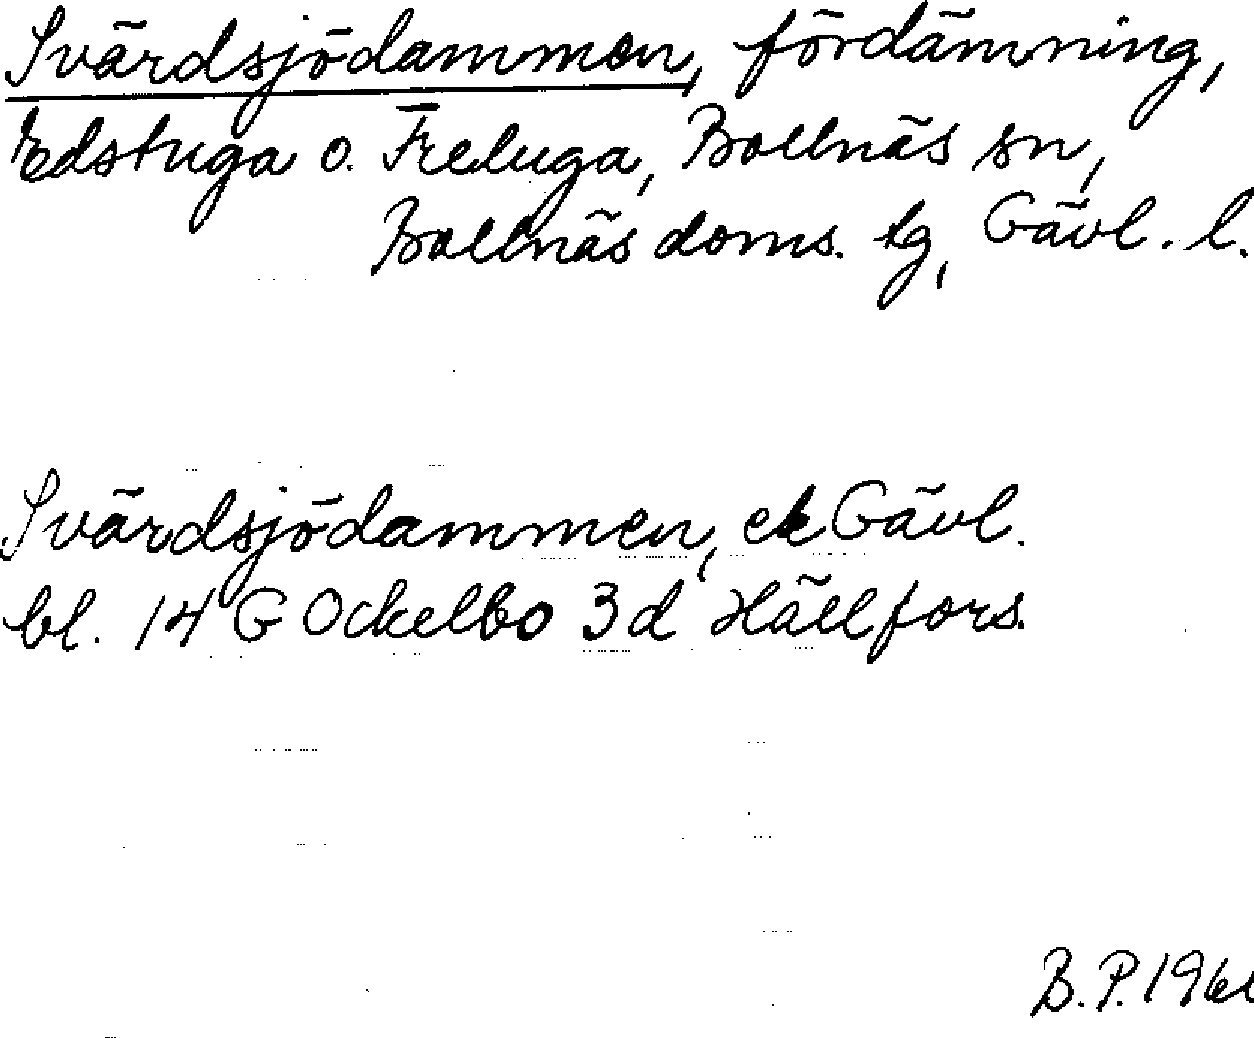 Svärdsjödammen, fördämning,
Edstuga o. Freluga, Bollnäs sn,
Bollnäs doms. lg, Gävl. l.
Svärdsjödammen, ek Gävl.
bl. 14 G Ockelbo 3d Hällfors.
B.P.